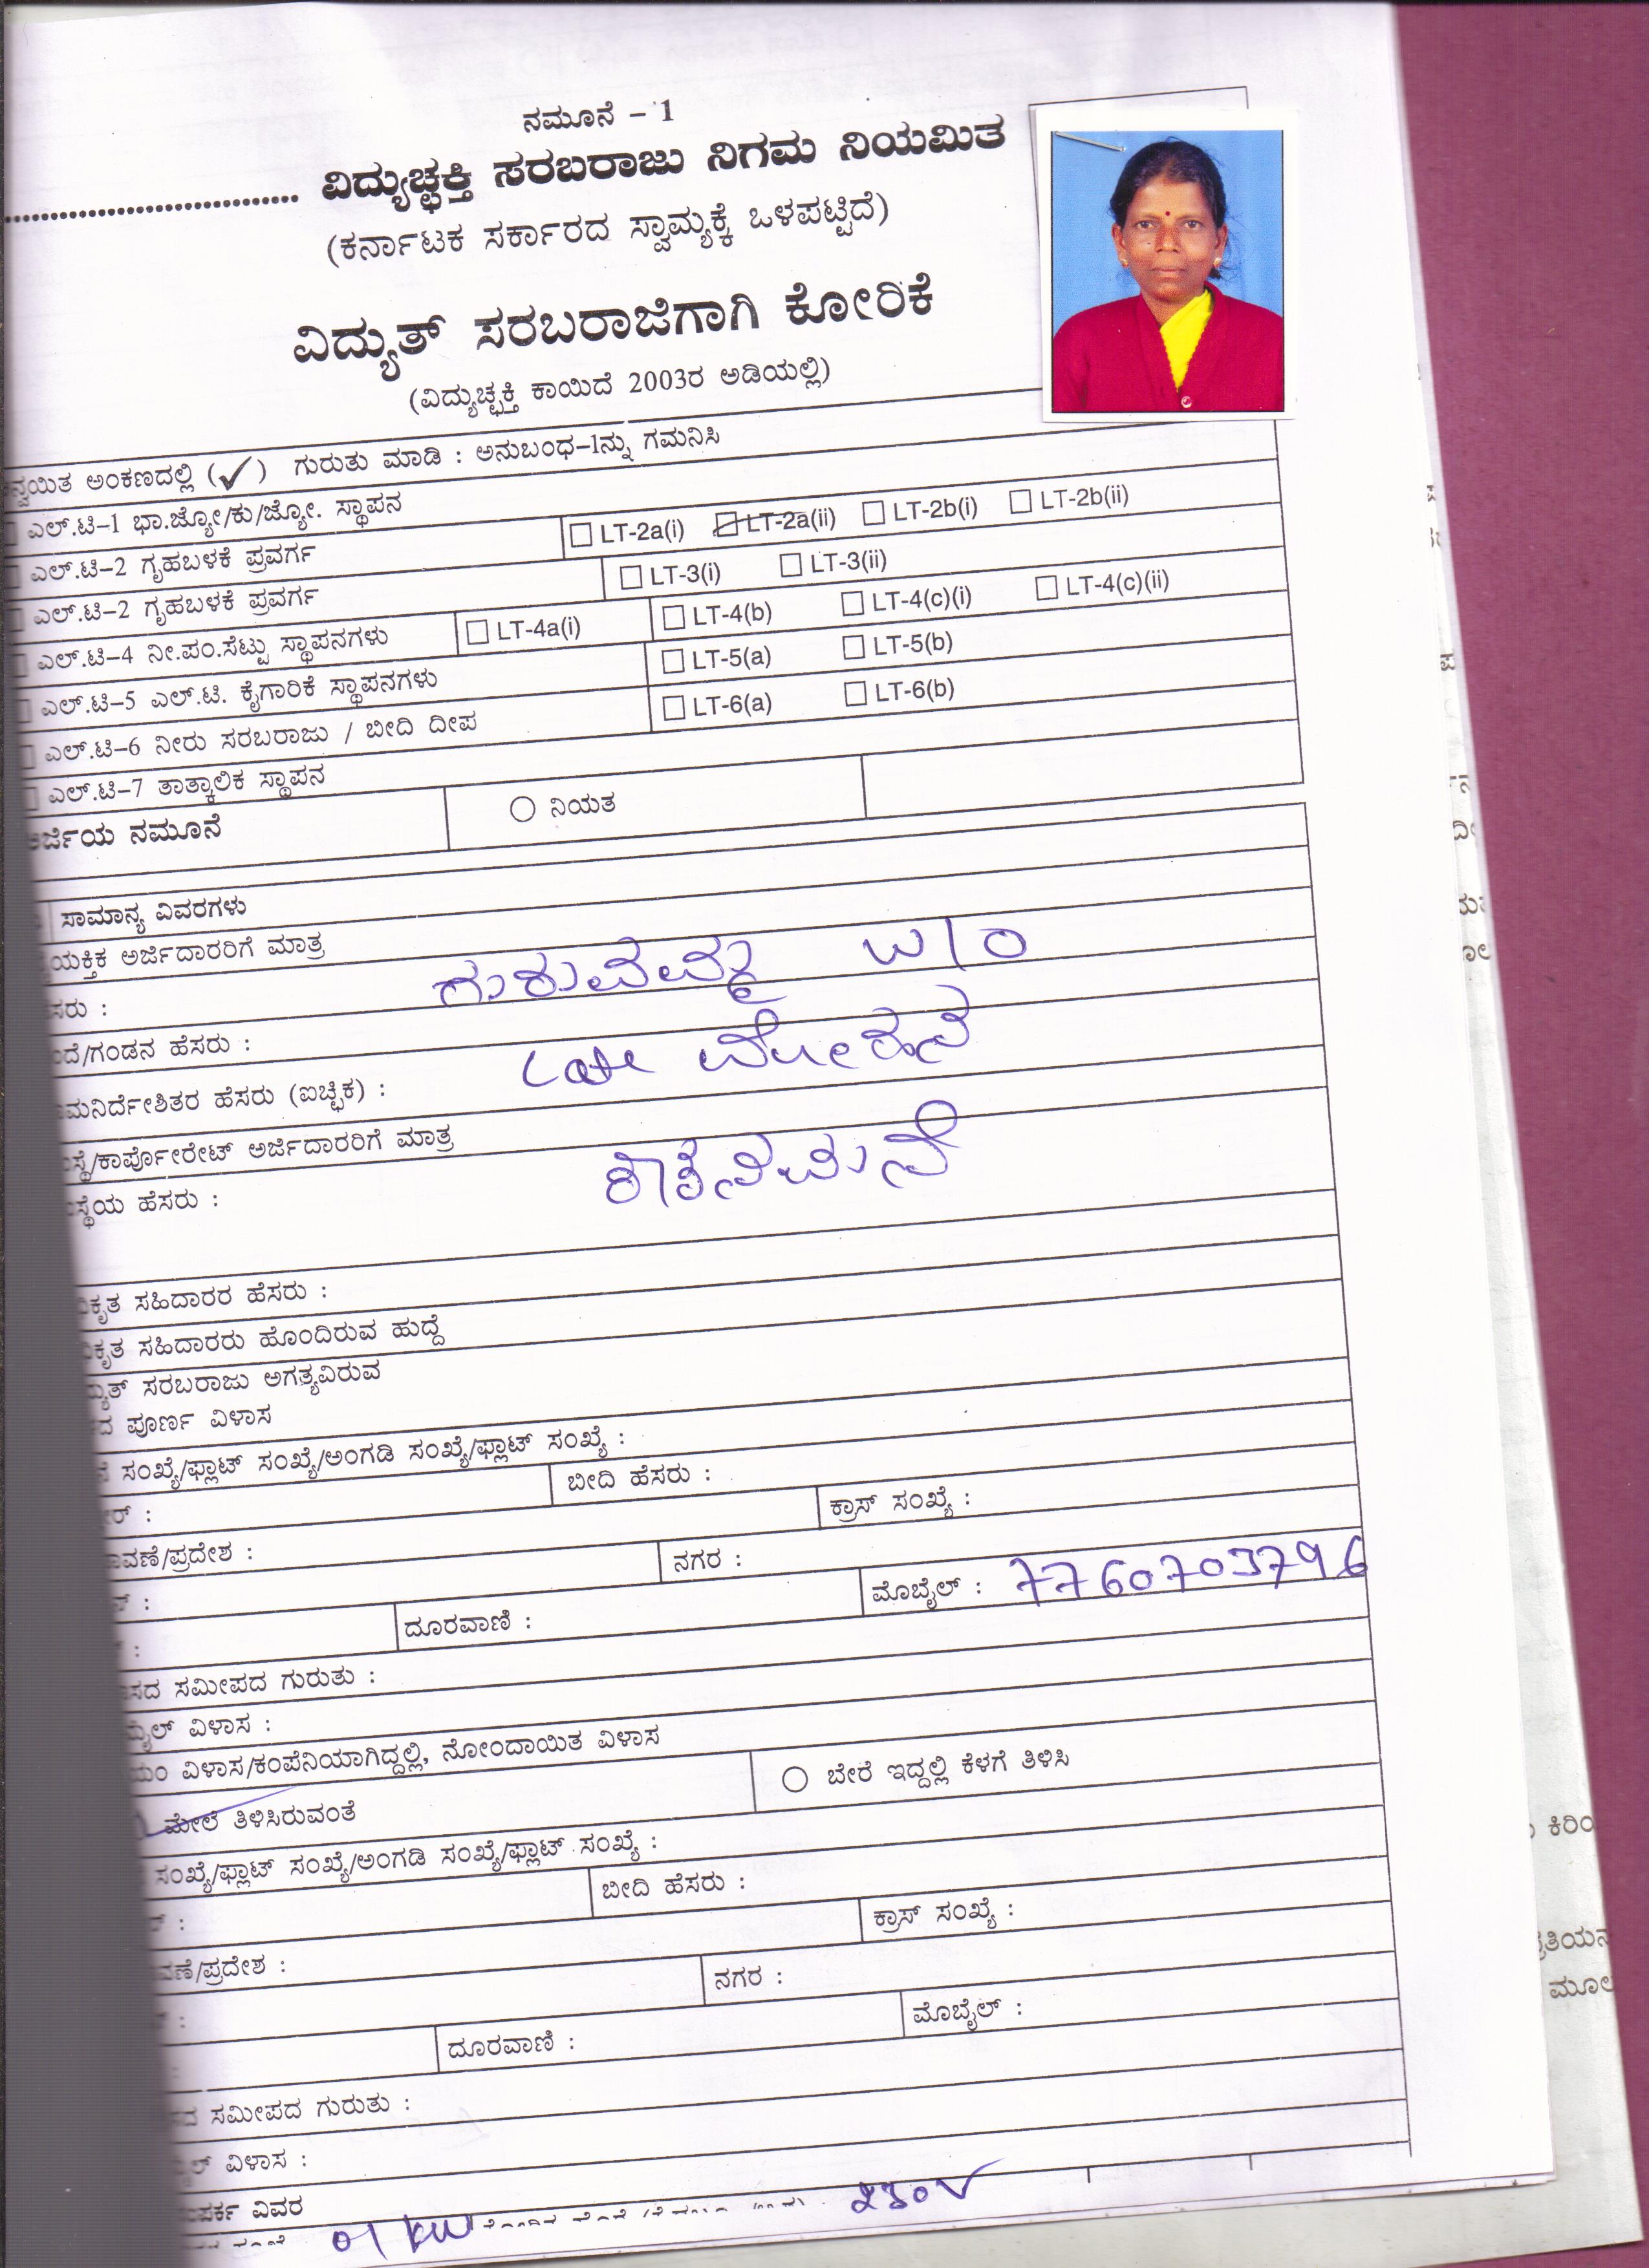 ನಮೂನೆ – 1
................................. ವಿದ್ಯುಚ್ಛಕ್ತಿ ಸರಬರಾಜು ನಿಗಮ ನಿಯಮಿತ
(ಕರ್ನಾಟಕ ಸರ್ಕಾರದ ಸ್ವಾಮ್ಯಕ್ಕೆ ಒಳಪಟ್ಟಿದೆ)
ವಿದ್ಯುತ್ ಸರಬರಾಜಿಗಾಗಿ ಕೋರಿಕೆ
(ವಿದ್ಯುಚ್ಛಕ್ತಿ ಕಾಯಿದೆ 2003ರ ಅಡಿಯಲ್ಲಿ)
ನ್ವಯಿತ ಅಂಕಣದಲ್ಲಿ (✓) ಗುರುತು ಮಾಡಿ : ಅನುಬಂಧ–1ನ್ನು ಗಮನಿಸಿ
ಎಲ್.ಟಿ–1 ಭಾ.ಜ್ಯೋ/ಕು/ಜ್ಯೋ. ಸ್ಥಾಪನ
ಎಲ್.ಟಿ–2 ಗೃಹಬಳಕೆ ಪ್ರವರ್ಗ LT-2a(i) LT-2a(ii) LT-2b(i) LT-2b(ii)
ಎಲ್.ಟಿ–2 ಗೃಹಬಳಕೆ ಪ್ರವರ್ಗ LT-3(i) LT-3(ii)
ಎಲ್.ಟಿ–4 ನೀ.ಪಂ.ಸೆಟ್ಟು ಸ್ಥಾಪನಗಳು LT-4a(i) LT-4(b) LT-4(c)(i) LT-4(c)(ii)
ಎಲ್.ಟಿ–5 ಎಲ್.ಟಿ. ಕೈಗಾರಿಕೆ ಸ್ಥಾಪನಗಳು LT-5(a) LT-5(b)
ಎಲ್.ಟಿ–6 ನೀರು ಸರಬರಾಜು / ಬೀದಿ ದೀಪ LT-6(a) LT-6(b)
ಎಲ್.ಟಿ–7 ತಾತ್ಕಾಲಿಕ ಸ್ಥಾಪನ
ಅರ್ಜಿಯ ನಮೂನೆ ನಿಯತ
ಸಾಮಾನ್ಯ ವಿವರಗಳು
ಯಕ್ತಿಕ ಅರ್ಜಿದಾರರಿಗೆ ಮಾತ್ರ
ಸರು : W/O
ದೆ/ಗಂಡನ ಹೆಸರು : Late
ಮನಿರ್ದೇಶಿತರ ಹೆಸರು (ಐಚ್ಛಿಕ) :
ಸ್ಥೆ/ಕಾರ್ಪೋರೇಟ್ ಅರ್ಜಿದಾರರಿಗೆ ಮಾತ್ರ
ಸ್ಥೆಯ ಹೆಸರು :
ಕೃತ ಸಹಿದಾರರ ಹೆಸರು :
ಕೃತ ಸಹಿದಾರರು ಹೊಂದಿರುವ ಹುದ್ದೆ
ದ್ಯುತ್ ಸರಬರಾಜು ಅಗತ್ಯವಿರುವ
ದ ಪೂರ್ಣ ವಿಳಾಸ
ಸಂಖ್ಯೆ/ಫ್ಲಾಟ್ ಸಂಖ್ಯೆ/ಅಂಗಡಿ ಸಂಖ್ಯೆ/ಫ್ಲಾಟ್ ಸಂಖ್ಯೆ :
ಬೀದಿ ಹೆಸರು :
ಕ್ರಾಸ್ ಸಂಖ್ಯೆ :
ಾವಣೆ/ಪ್ರದೇಶ :
ನಗರ :
ದೂರವಾಣಿ : ಮೊಬೈಲ್ : 7760703796
ಸದ ಸಮೀಪದ ಗುರುತು :
ಮೈಲ್ ವಿಳಾಸ :
ಯಂ ವಿಳಾಸ/ಕಂಪೆನಿಯಾಗಿದ್ದಲ್ಲಿ, ನೋಂದಾಯಿತ ವಿಳಾಸ
ಮೇಲೆ ತಿಳಿಸಿರುವಂತೆ ಬೇರೆ ಇದ್ದಲ್ಲಿ ಕೆಳಗೆ ತಿಳಿಸಿ
ಸಂಖ್ಯೆ/ಫ್ಲಾಟ್ ಸಂಖ್ಯೆ/ಅಂಗಡಿ ಸಂಖ್ಯೆ/ಫ್ಲಾಟ್ ಸಂಖ್ಯೆ :
ಬೀದಿ ಹೆಸರು :
ಕ್ರಾಸ್ ಸಂಖ್ಯೆ :
ವಣೆ/ಪ್ರದೇಶ :
ನಗರ :
ದೂರವಾಣಿ : ಮೊಬೈಲ್ :
ದ ಸಮೀಪದ ಗುರುತು :
ಮೈಲ್ ವಿಳಾಸ :
ಂಪರ್ಕ ವಿವರ
01 KW 230V